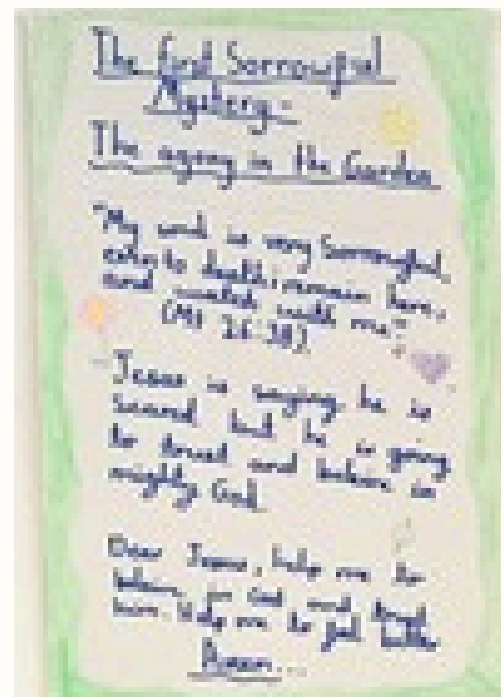 The first Sorrowful
Mystery-
The agony in the Garden
"My soul is very Sorrowful,
even to death; remain here,
and watch with me".
(Mt 26:38)
Jesus is saying he is
Scared but he is going
to trust and believe in
mighty God
Dear Jesus, help me to
believe in God and trust
him. Help me to get better
Amen...